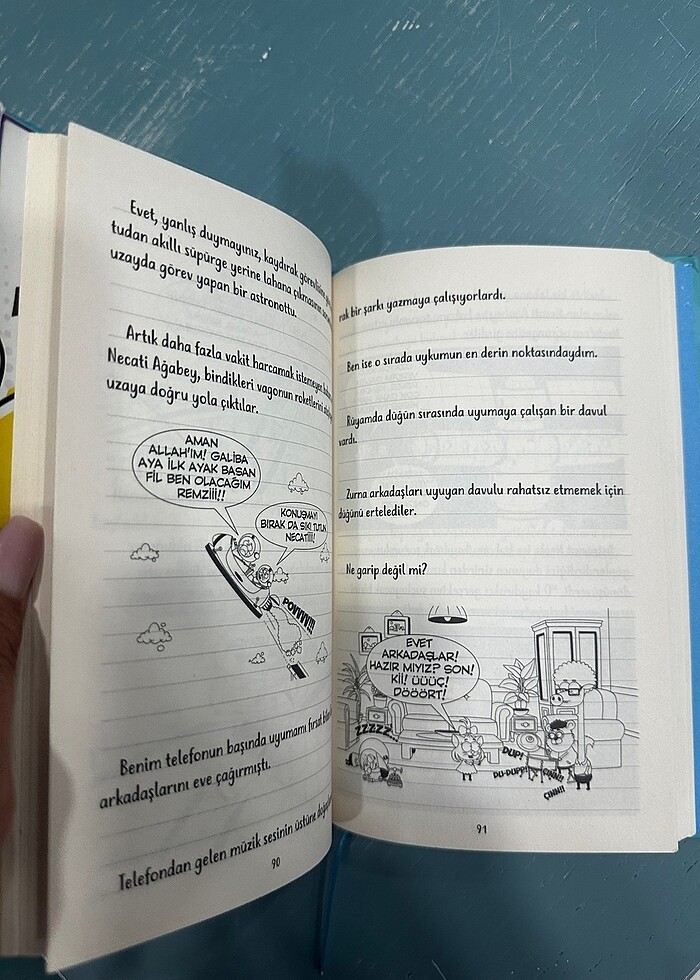 Evet, yanlış duymayınız, kaydırak
tudan akıllı süpürge yerine lahana çıkmasının
uzayda görev yapan bir astronottu.
Artık daha fazla vakit harcamak istemeyen
Necati Ağabey, bindikleri vagonun roketlerini
uzaya doğru yola çıktılar.
AMAN
ALLAH'IM! GALİBA
AYA İLK AYAK BASAN
FİL BEN OLACAĞIM
REMZİİİ!!
KONUŞMAYI
BIRAK DA SIKI TUTUN
NECATİİİ!
POVVVV!!!
Benim telefonun başında uyumamı fırsat
arkadaşlarını eve çağırmıştı.
Telefondan gelen müzik sesinin üstüne
90
rak bir şarkı yazmaya çalışıyorlardı.
Ben ise o sırada uykumun en derin noktasındaydım.
Rüyamda düğün sırasında uyumaya çalışan bir davul
vardı.
Zurna arkadaşları uyuyan davulu rahatsız etmemek için
düğünü ertelediler.
Ne garip değil mi?
EVET
ARKADAŞLAR!
HAZIR MIYIZ? SON!
Kİİ! ÜÜÜÇ!
DÖÖÖRT!
ZZZZZ...
DUP!
DU-DUPP!
ÇINN!!
ÇINN!!
91